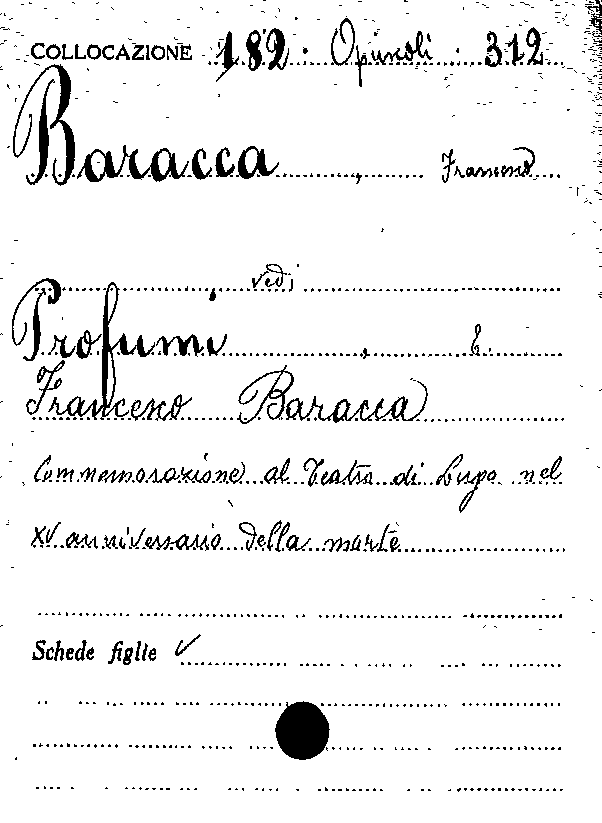 COLLOCAZIONE 182. Opuscoli. 312
Baracca, Francesco
vedi
Profumi, E.
Francesco Baracca
Commemorazione al Teatro di Lugo nel
XV anniversario della morte
Schede figlie ✓